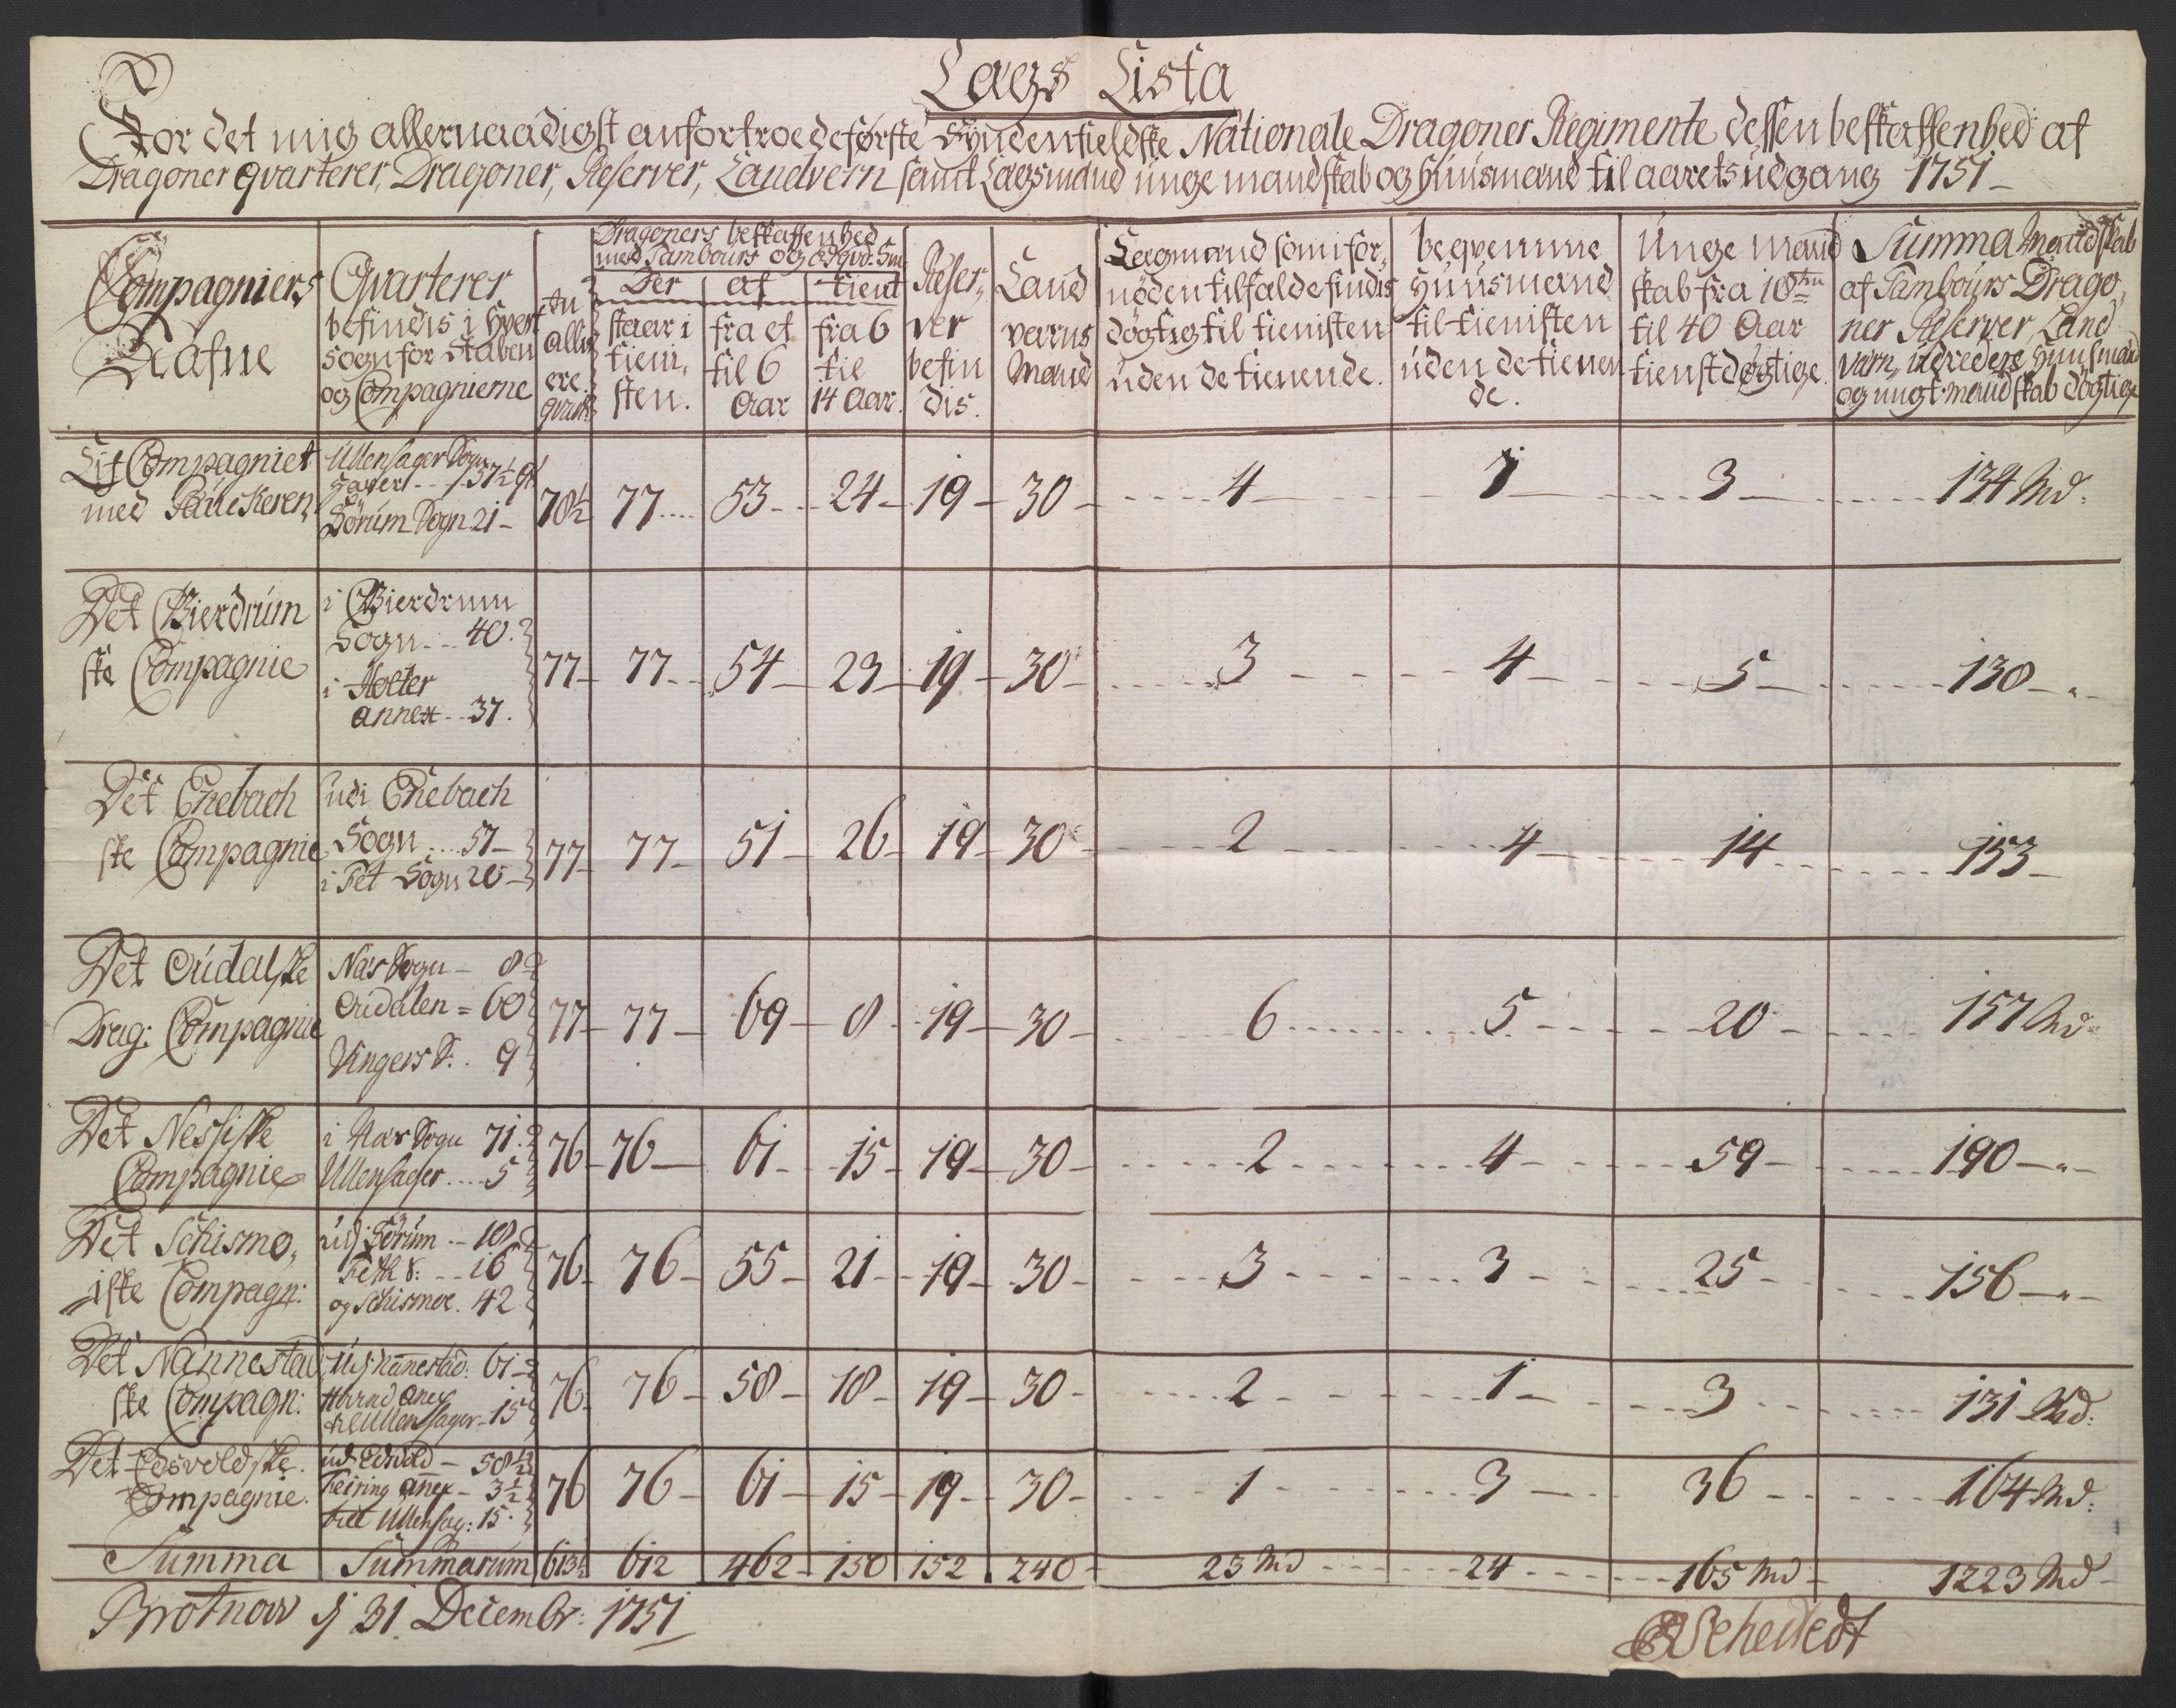 Lægs Lista
For det mig allernaadigst anfortroede første Syndenfieldske Nationale Dragoner Regimente dessen beskaffenhed af
Dragoner qvarterer, Dragoner, Reserver, Landvern samt Lægsmænd unge mandskab og Huusmænd til aarets udgang 1751
Compagniers
Nafne
Qvarterer
befindis i hver
sogn for Staben
og Compagnierne
allis
ere
Dragoners beskaffenhed
med Tambours og
Der
staar i
tieni,
sten.
af
fra et
til 6
Aar
tient
fra 6
til
14 Aar.
Reser,
ver
befin
dis.
Land
værns
Mænd
Lægmænd som i for,
nøden tilfalde findis
døgtig til tienisten
uden de tienende.
beqvemme
Huusmænd
til tienisten
uden de tienen
de.
Unge Mand
skab fra 18 ten
til 40 Aar
tienstdøgtige.
Summa Mandskab
af Tambours Drago,
ner Reserver, Land
Værn, udredere Huusmænd
og ungt mandskab døgtige
Lif Compagniet
med
Ullensager Sogn
57½
Sörum Sogn 21
78½ 77 53 24 19 30 4 1 3 134 Md:
Det Bierdrum
ske Compagnie
i Bierdrum
Sogn 40.
i Holter
annex 37.
77 77 54 23 19 30 3 4 5 130
Det Enebach
ske Compagnie
udi Enebach
Sogn 57
i Fet Sogn 20
77 77 51 26 19 30 2 4 14 153
Det Oudalske
Drag: Compagnie
Næs Sogn 8
Oudalen 60
Vingers S: 9
77 77 69 8 19 30 6 5 20 157 Md
Det Nessiske
Compagnie
i Næs Sogn 71.
Ullensager 5
76 76 61 15 19 30 2 4 59 190
Det Schismo,
iske Compagn:
udj Sörum 18
Feth S: 16
og Schismoe 42
76 76 55 21 19 30 3 3 25 156
Det Nannestad
ske Compagn:
udj Nanestad: 61
anex
Ullensager 15
76 76 58 18 19 30 2 1 3 131 Md:
Det Edsvoldske
Compagnie.
udj Edsvold 58½
Feiring anex 3½
Ullensag: 15.
76 76 61 15 19 30 1 3 36 164 Md:
Summa Summarum 613½ 612 462 150 152 240 23 Md 24 165 Md 1223 Md
Brotnow d 31 Decembr: 1751